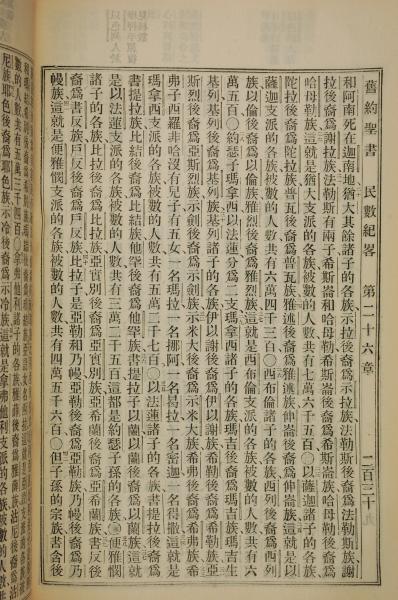 舊約聖書 民數紀畧 第二十六章 二百三十
和阿南死在迦南地猶大其餘諸子的各族示拉後裔爲示拉族法勒斯後裔爲法勒斯族謝
拉後裔爲謝拉族法勒斯有兩子希斯崙和哈母勒希斯崙後裔爲希斯崙族哈母勒後裔爲
哈母勒族這就是猶大支派的各族被數的人數共有七萬六千五百○以薩迦諸子的各族
陀拉後裔爲陀拉族普瓦後裔爲普瓦族雅述後裔爲雅述族伸崙後裔爲伸崙族這就是以
薩迦支派的各族被數的人數共有六萬四千三百○西布倫諸子的各族西列後裔爲西列
族以倫後裔爲以倫族雅烈後裔爲雅烈族這就是西布倫支派的各族被數的人數共有六
萬五百○約瑟子瑪拿西以法蓮分爲二支瑪拿西諸子的各族瑪吉後裔爲瑪吉族瑪吉生
基列基列後裔爲基列族基列諸子的各族伊以謝後裔爲伊以謝族希勒後裔爲希勒族亞
斯烈後裔爲亞斯烈族示劍後裔爲示劍族示米大後裔爲示米大族希弗後裔爲希弗族希
弗子西羅非哈沒有兒子有五女一名瑪拉一名挪阿一名曷拉一名密迦一名得撒這就是
瑪拿西支派的各族被數的人數共有五萬二千七百○以法蓮諸子的各族書提拉後裔爲
書提拉族比結後裔爲比結族他罕後裔爲他罕族書提拉子以蘭以蘭後裔爲以蘭族這就
是以法蓮支派的各族被數的人數共有三萬二千五百這都是約瑟子孫的各族○便雅憫
諸子的各族比拉後裔爲比拉族亞實別後裔爲亞實別族亞希蘭後裔爲亞希蘭族書反後
裔爲書反族戶反後裔爲戶反族比拉子是亞勒和乃幔亞勒後裔爲亞勒族乃幔後裔爲乃
幔族這就是便雅憫支派的各族被數的人數共有四萬五千六百○但子孫的宗族書含後